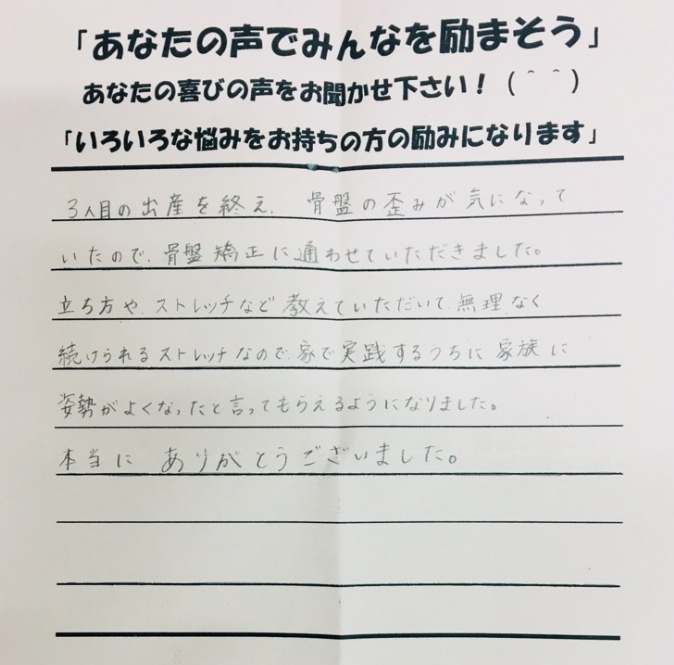 「あなたの声でみんなを励まそう」
あなたの喜びの声をお聞かせ下さい！（＾＾）
「いろいろな悩みをお持ちの方の励みになります」
3人目の出産を終え、骨盤の歪みが気になって
いたので、骨盤矯正に通わせていただきました。
立ち方や、ストレッチなど教えていただいて、無理なく
続けられるストレッチなので、家で実践するうちに家族に
姿勢がよくなったと言ってもらえるようになりました。
本当にありがとうございました。